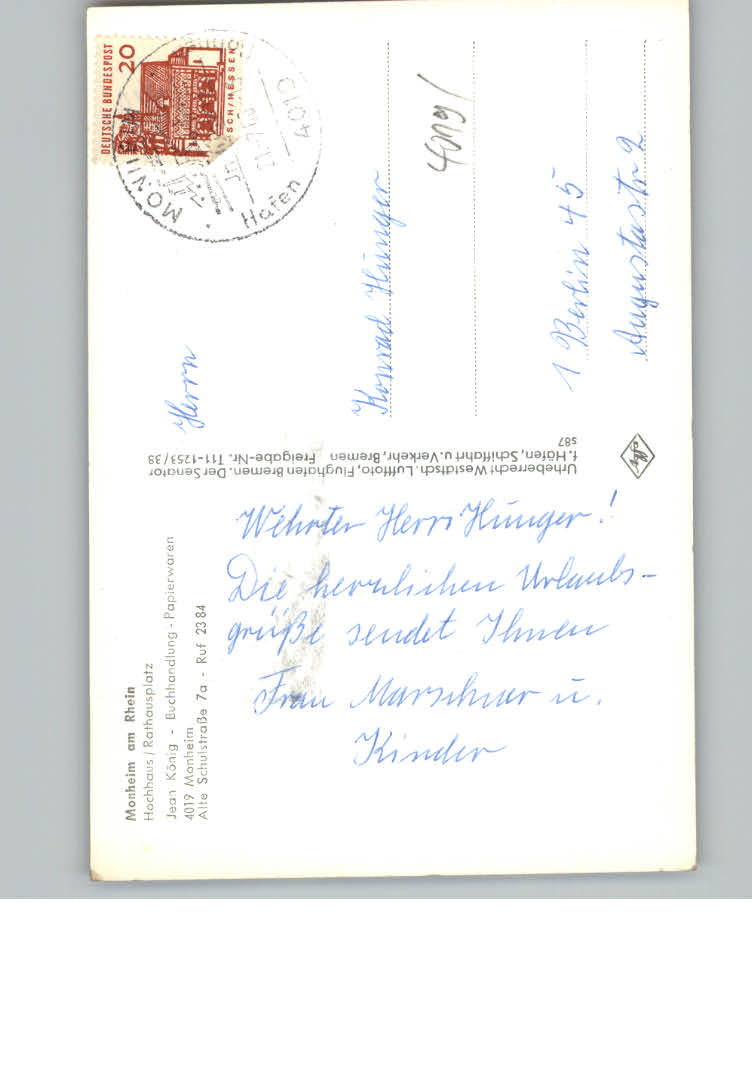 Monheim am Rhein
Hochhaus / Rathausplatz
Jean König - Buchhandlung - Papierwaren
4019 Monheim
Alte Schulstraße 7a - Ruf 23 84
Wehrter Herr Hunger!
Die herzlichen Urlaubs-
grüße sendet Ihnen
Frau Marschner u.
Kinder
Urheberrecht Westdtsch. Luftfoto, Flughafen Bremen. Der Senator
f. Häfen, Schiffahrt u. Verkehr, Bremen Freigabe-Nr. T11-1253/38
S87
DEUTSCHE BUNDESPOST
20
SCH/HESSEN
Hafen
4019
Herrn
Konrad Hunger
1 Berlin 45
Augustastr 2
4019/